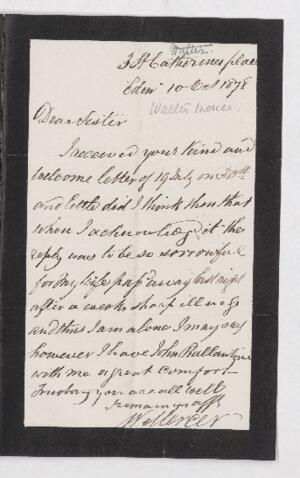 Walter
3 St Catherines place
Edinr 10 Oct 1878
Walter Mercer
Dear Sister
I received your kind and
welcome letter of 19 July on 30th
and little did I think then that
when I acknowledged it the
reply was to be so sorrowful
for My wife pass away last night
after a weeks sharp illness
and thus I am alone I may say
however I have John Ballantyne
with me a great comfort
Trusting you are all well
I remain yr aff
W Mercer